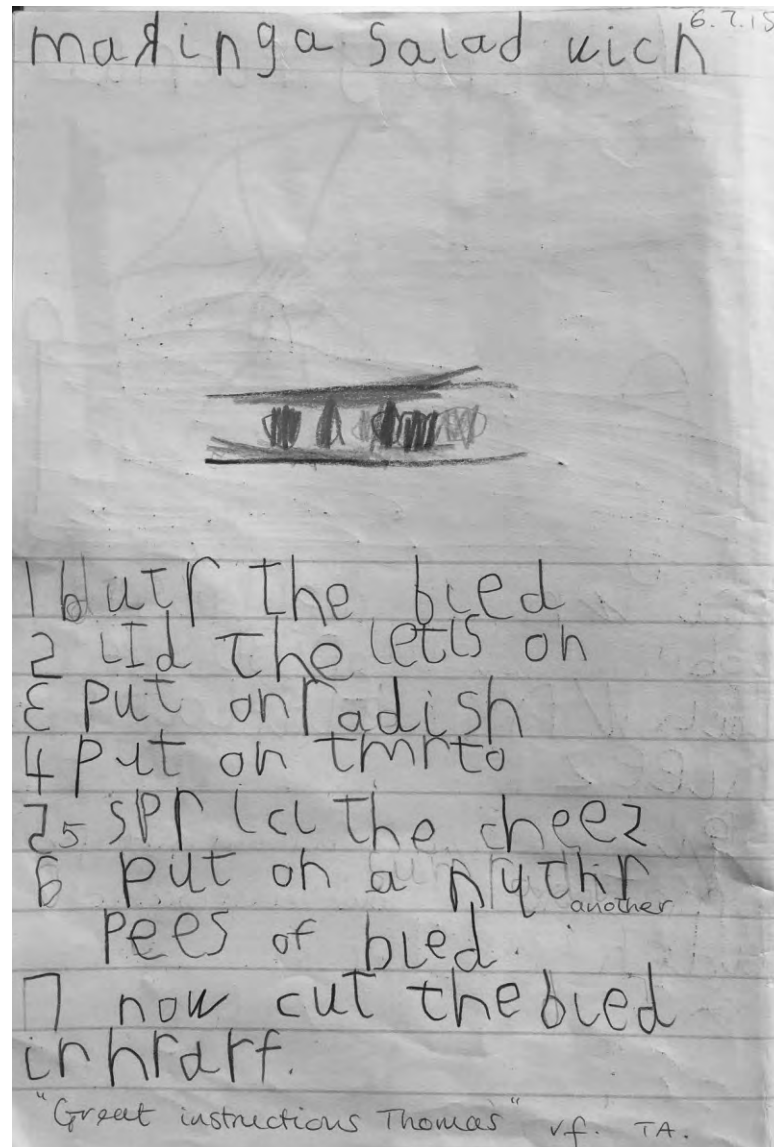 6.7.15
making a salad wich
1 butr the bred
2 lId the letis on
3 put on radish
4 put on tmrto
5 sprlcl the cheez
6 put on a nythr
another
pees of bred.
7 now cut the bred
in hrarf.
"Great instructions Thomas" vf. TA.